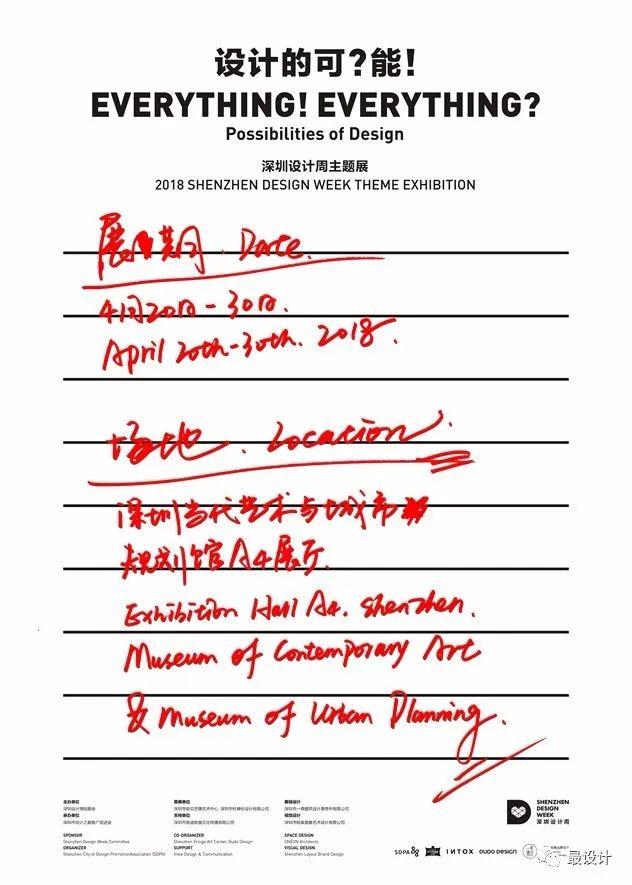 设计的可?能!
EVERYTHING! EVERYTHING?
Possibilities of Design
深圳设计周主题展
2018 SHENZHEN DESIGN WEEK THEME EXHIBITION
展期 Date
4月20日-30日.
April 20th-30th. 2018.
场地. Location.
深圳当代艺术与城市
规划馆A4展厅.
Exhibition Hall A4. Shenzhen.
Museum of Contemporary Art
& Museum of Urban Planning.
主办单位
深圳设计周组委会
承办单位
深圳市设计之都推广促进会
SPONSOR
Shenzhen Design Week Committee
ORGANIZER
Shenzhen City of Design PromotionAssociation (SDPA)
策展单位
支持单位
CO-ORGANIZER
Shenzhen Fringe Art Center, Dudo Design
SUPPORT
Intox Design & Communication
展场设计
视觉设计
SPACE DESIGN
ONEXN Architects
VISUAL DESIGN
Shenzhen Layout Brand Design
SHENZHEN
DESIGN
WEEK
深圳设计周
SDPA
INTOX
DUDO DESIGN
最设计